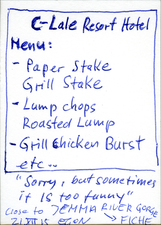 C-Lale Resort Hotel
Menu:
- Paper Stake
Grill Stake
- Lump chops
Roasted Lump
- Grill chicken Burst
etc..
"Sorry, but sometimes
it is too funny"
close to JEMMA RIVER GORGE
→ FICHE